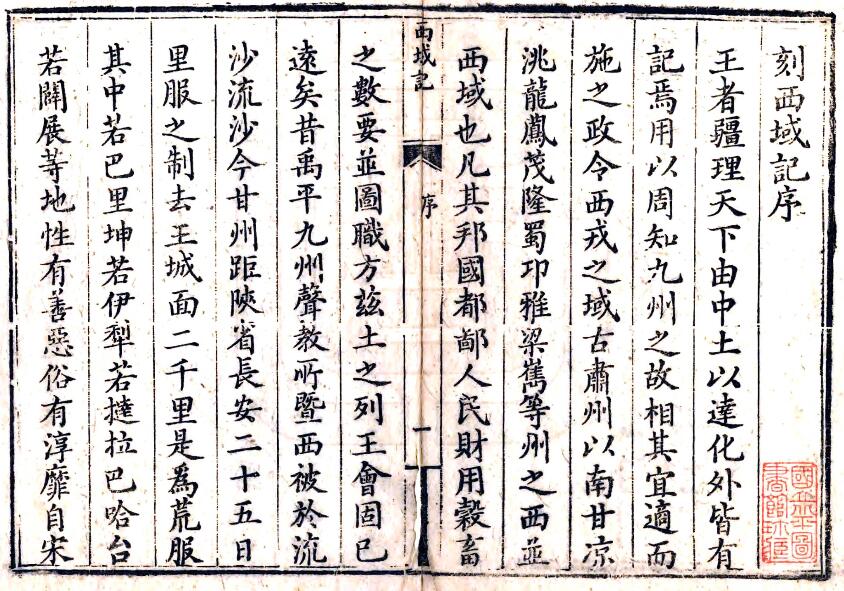 刻西域記序
王者疆理天下由中土以達化外皆有
記焉用以周知九州之故相其宜適而
施之政令西戎之域古肅州以南甘凉
洮龍鳳茂隆蜀卭雅梁嶲等州之西並
西域也凡其邦國都鄙人民財用穀畜
西域記
序
一
之數要並圖職方茲土之列王會固已
遠矣昔禹平九州聲教所暨西被於流
沙流沙今甘州距陝省長安二十五日
里服之制去王城面二千里是為荒服
其中若巴里坤若伊犁若撻拉巴哈台
若闢展等地性有善惡俗有淳靡自宋